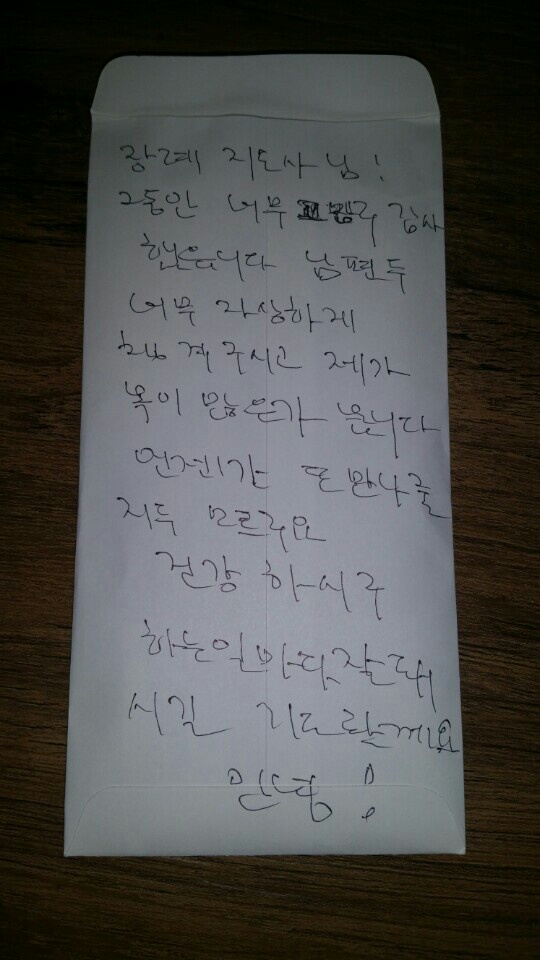 장례 지도사 님!
그동안 너무 고맙구 감사
했읍니다 남편두
너무 자상하게
챙겨 주시고 제가
복이 많은가 봅니다
언젠가 또 만나줄
지두 모르구요
건강 하시구
하는일마다 잘돼
시길 기도할께요
안녕!